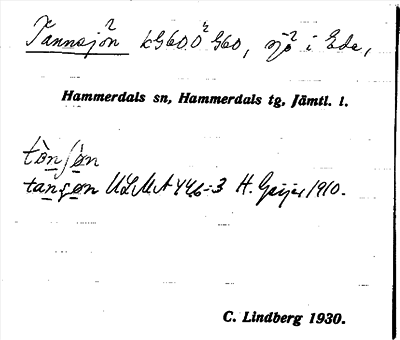 Tannsjön kG60.O G60, sjö i Ede,
Hammerdals sn, Hammerdals tg, Jämtl. l.
tònʃøn
tansøn ULMA 446:3 H. Geijer 1910.
C. Lindberg 1930.